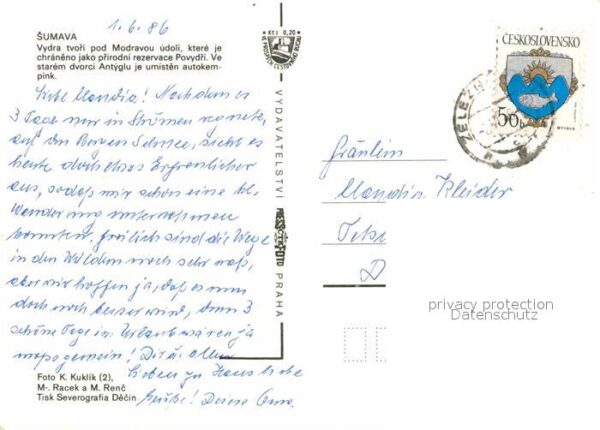 1.6.86
ŠUMAVA
Vydra tvoří pod Modravou údolí, které je
chráněno jako přírodní rezervace Povydří. Ve
starém dvorci Antýglu je umístěn autokem-
pink.
Liebe Claudia! Nachdem es
3 Tage nur in Strömen regnete,
auf den Bergen Schnee, sieht es
heute doch etwas Erfreulicher
aus, sodaß wir schon eine kl.
Wanderung unternehmen
konnten. Freilich sind die Wege
in den Wäldern noch sehr naß,
aber wir hoffen ja, daß es nun
doch noch besser wird, denn 3
schöne Tage im Urlaub wären ja
zu gemein! Dir u. allen
Lieben zu Hause liebe
Grüße! Deine Oma.
Foto K. Kuklík (2),
M. Racek a M. Renč
Tisk Severografia Děčín
Kčs 0,20
VYDAVATELSTVÍ
PRESSFOTO
PRAHA
ČESKOSLOVENSKO
50
MYJAVA
ŽELEZN
Fräulein
Claudia Kleider
D
privacy protection
Datenschutz